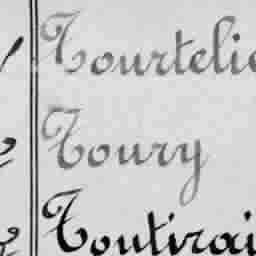 Tourtelie
Toury
Toutirai